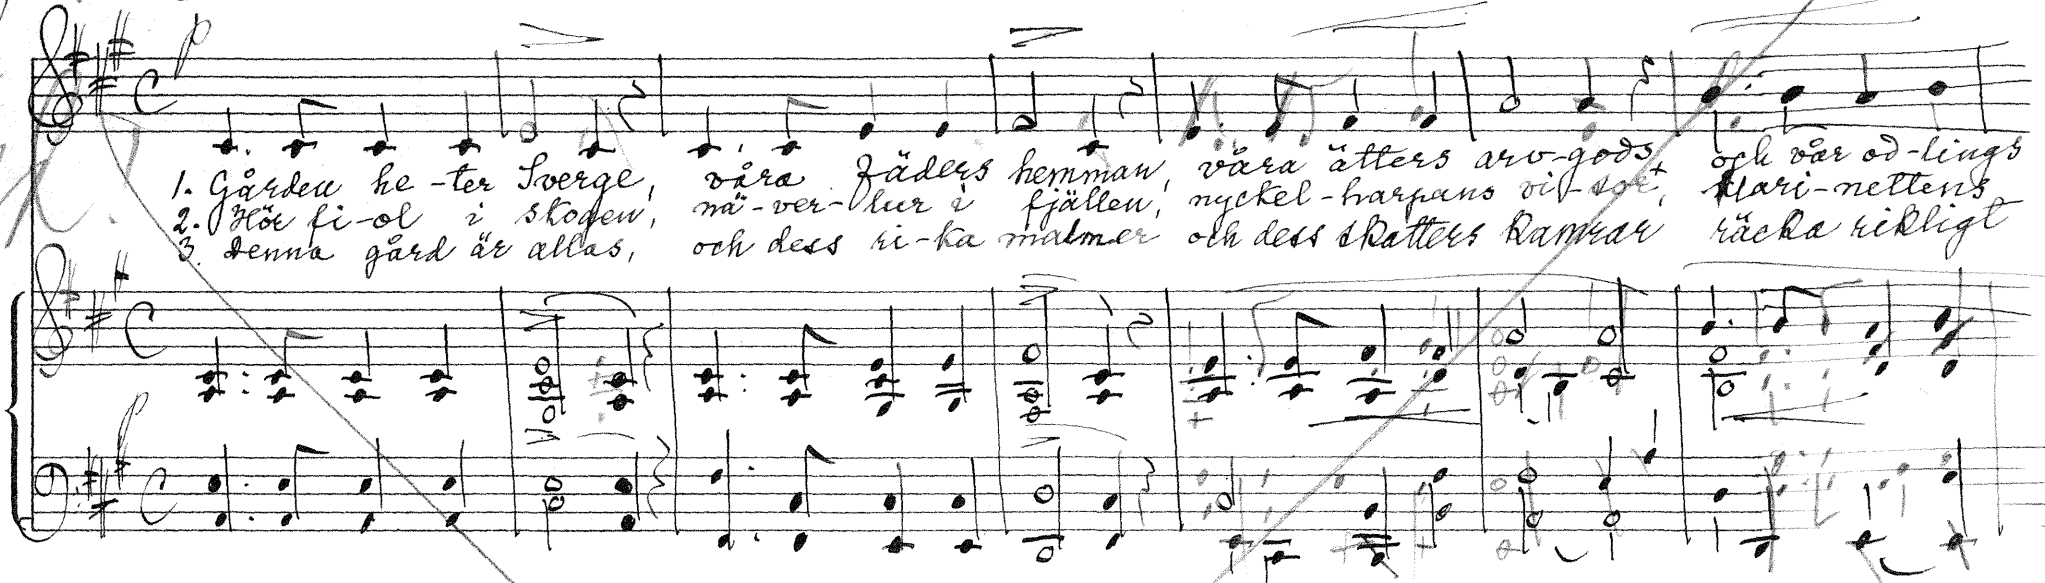 p
1. Gården he-ter Sverge, våra fäders hemman, våra ätters arv-gods, och vår od-lings
2. Hör fi-ol i skogen, nä-ver-lur i fjällen, nyckel-harpans vi-sor, klari-nettens
3. Denna gård är allas, och dess ri-ka malmer och dess skatters kamrar räcka rikligt
p